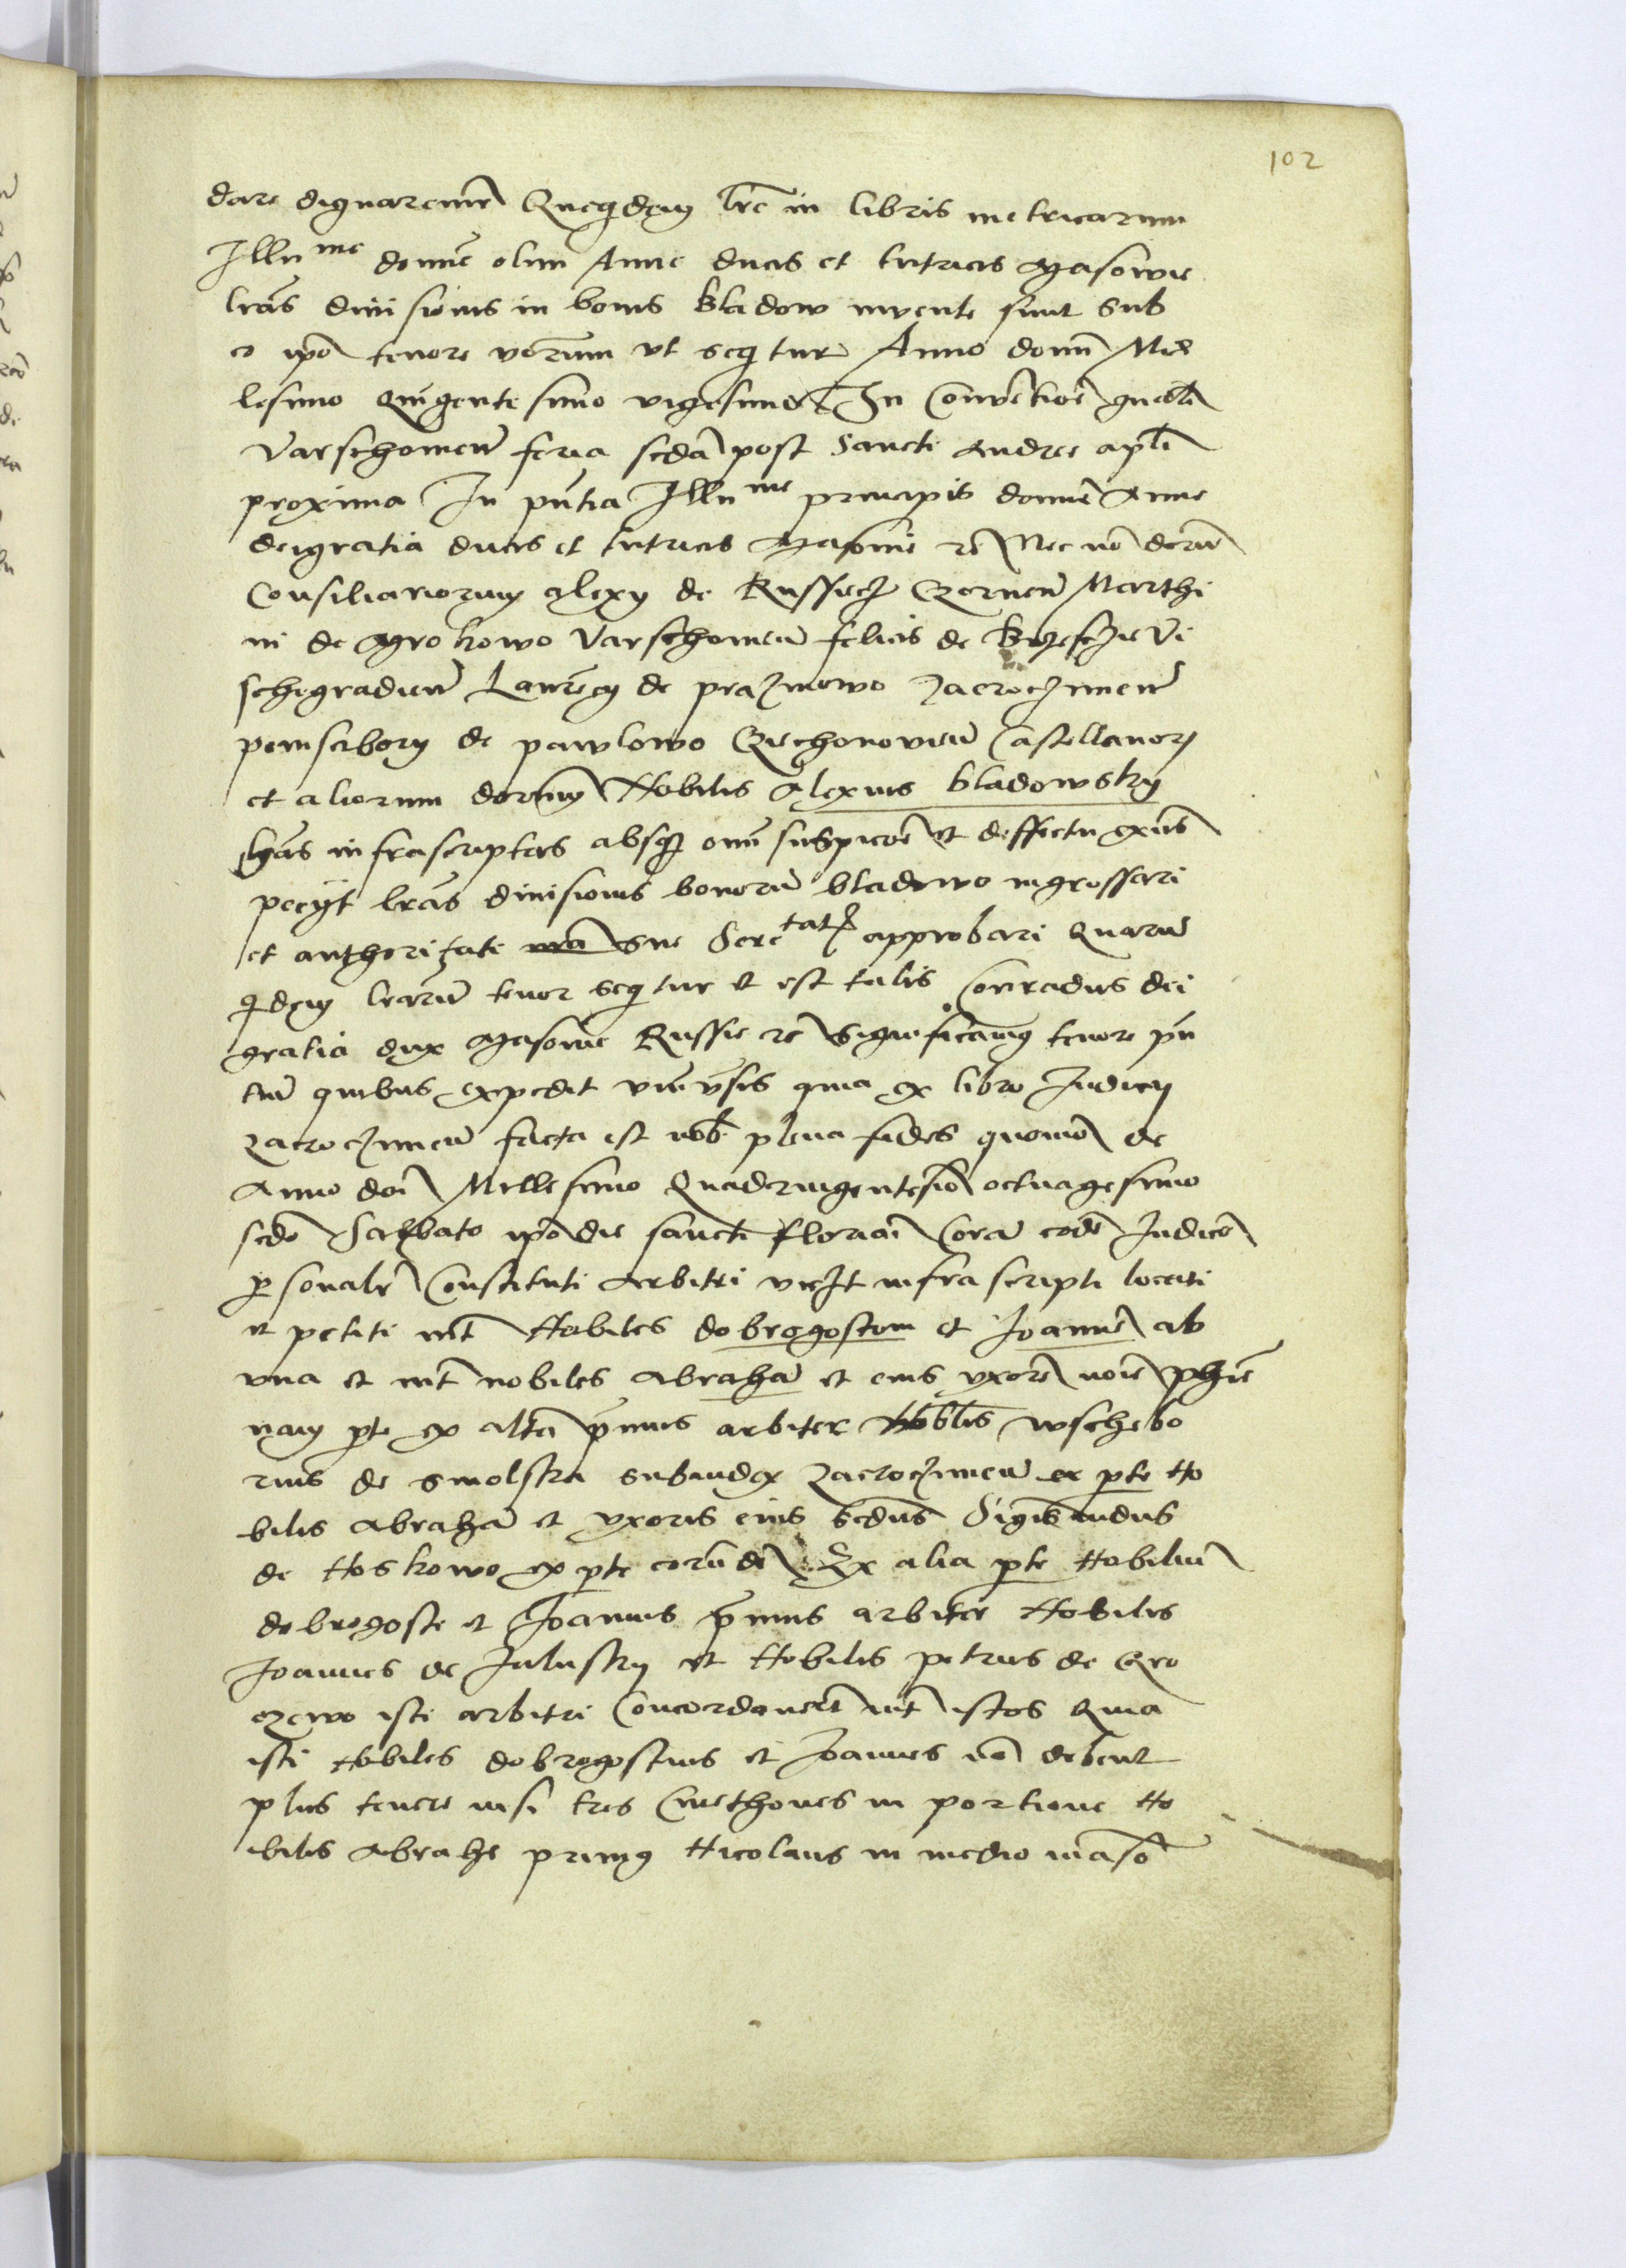 102
dare dignaremur Queqdem lre in libris metricarum
Illu me domne olim Anne ducis et tutricis Masowie
lras divisionis in bonis bladow invente sunt sub
eo ipo tenore verum ut seqitur Anno domi Mil
lesimo Quingentesimo vigesimo In Conventione gnali
Varschovien feria scda post Sancti Andree apli
proxima In pntia Illu me principis domne Anne
dei gratia ducis et tutricis Masowie rc Nec non
Consiliariorum Alexy de Marthi
ni de Mrokowo Varschovien felicis de Vi
schegradien Laurency de prazmowo Zacroczimen
pomsciborij de pawlowo Czechonovien Castellanor
et aliorum Nobilis Alexius bladowsky
has infrascriptas absq omi suspicoe et deffectu exns
pecyt lras divisionis bonoru bladowo ingrossari
et authorizate sue Sere tat approbari Quaru
qdem lraru tenor seqitur et est talis Conradus dei
gratia dux Masowie Russie rc Significamus tenore pn
tiu quibus expedit univsis quia ex libro Judicij
Zacroczimen facta est nob plena fides quomo de
Anno doi Millesimo Quadringentesio octuagesimo
scdo Sabbato ipo die sancti floriai Cora eode Judico
psonalr Constituti Arbitri infra scripti locati
et petiti int Nobiles dobrogostum et Joanne ab
una et int nobiles Abraha et eius uxore noie phie
nam pte ex alta pmus arbiter Nobilis wschebo
rius de smolska subiudex Zacroczimen ex pte No
bilis Abraha et uxoris eius scdus Sigismudus
de Noskowo ex pte eorude Ex alia pte Nobiliu
dobrogosti et Joannis pmus arbiter Nobilis
Joannes de et Nobilis petrus de
isti arbitri Concordaverut int istos Quia
isti Nobiles dobrogostius et Joannes no debent
plus tenere nisi tres Cmethones in portione No
bilis Abrahe primus Nicolaus in medio